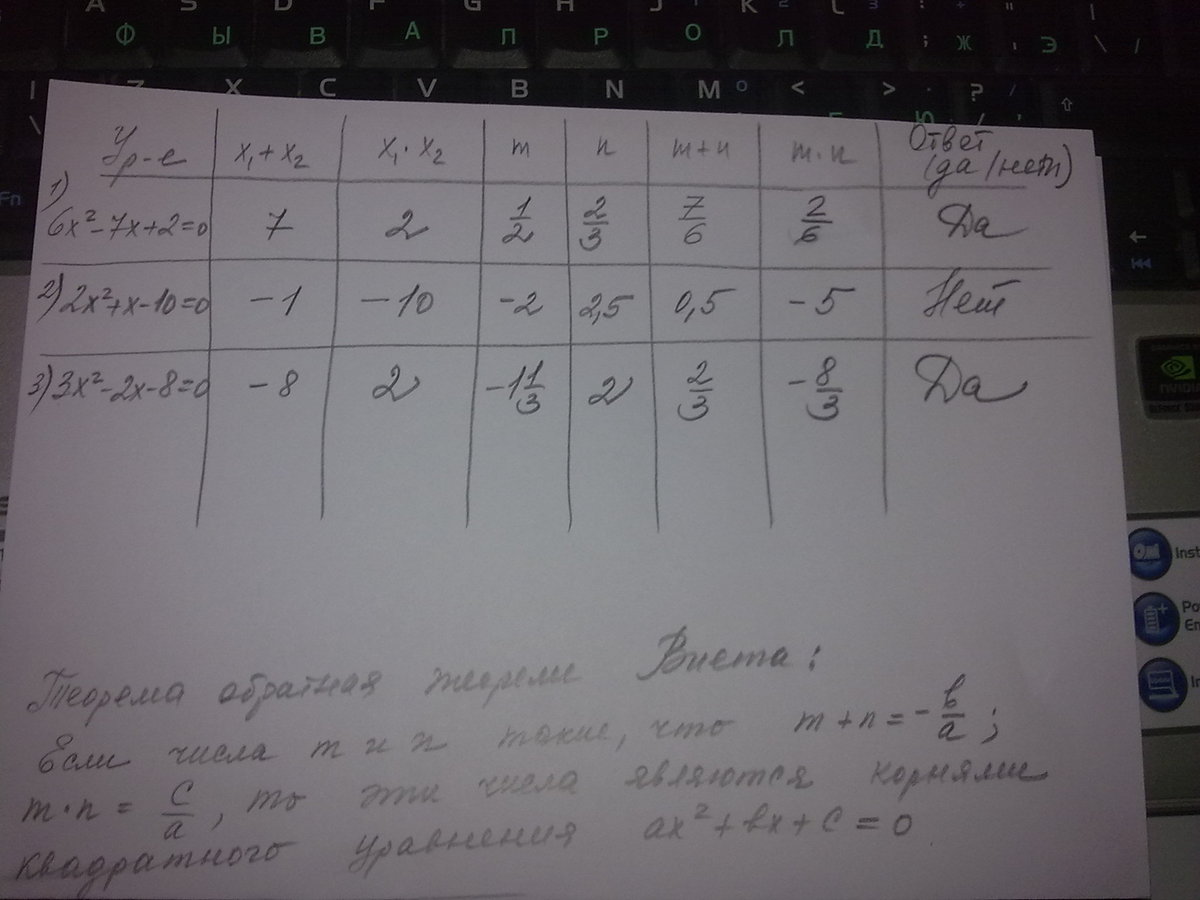 A S D F G H J K L
Ф Ы В А П Р О Л Д ; Ж Э
X C V B N M < > ?
Fn
Ур-е x₁+x₂ x₁·x₂ m n m+n m·n Ответ (да/нет)
1) 6x²-7x+2=0 7 2 1/2 2/3 7/6 2/6 Да
2) 2x²+x-10=0 -1 -10 -2 2,5 0,5 -5 Нет
3) 3x²-2x-8=0 -8 2 -1 1/3 2 2/3 -8/3 Да
Теорема обратная теореме Виета:
Если числа m и n такие, что m+n=-в/а;
m·n = c/a, то эти числа являются корнями
квадратного уравнения ax²+вx+c=0